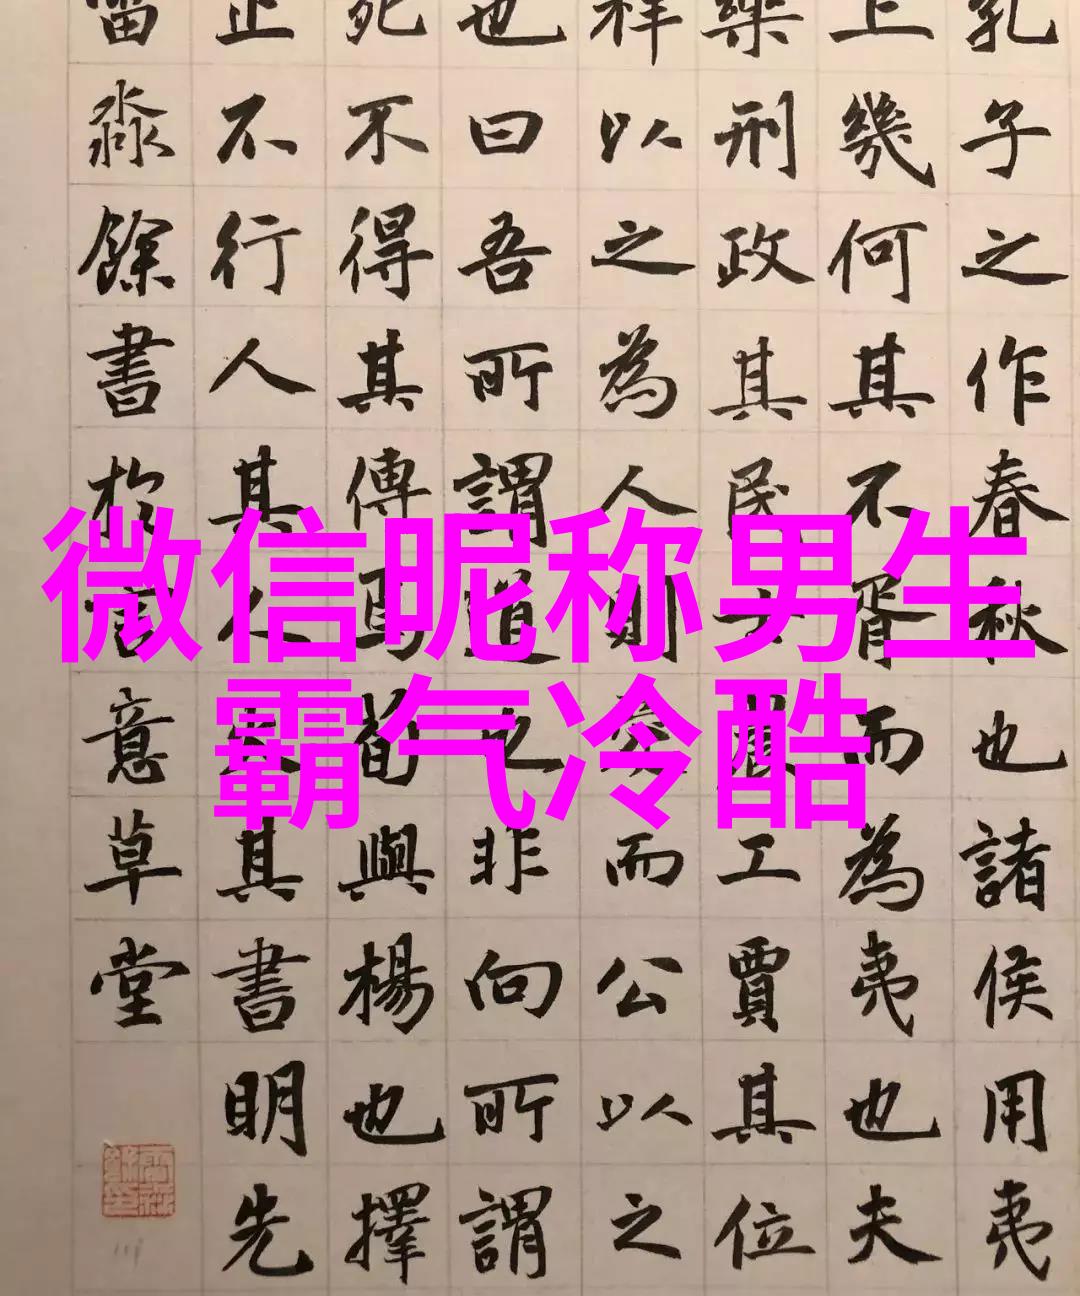 微信昵称男生
霸气冷酷
孔子之作春秋也諸侯用夷
上幾何其不胥而為夷也夫
樂刑政其民士農工賈其位
祥以之為人則愛而公以之
也曰吾所謂道之非向所謂
死不得其傳焉荀與楊也擇
止不行人其人火其書明先
淼餘書於言意草堂